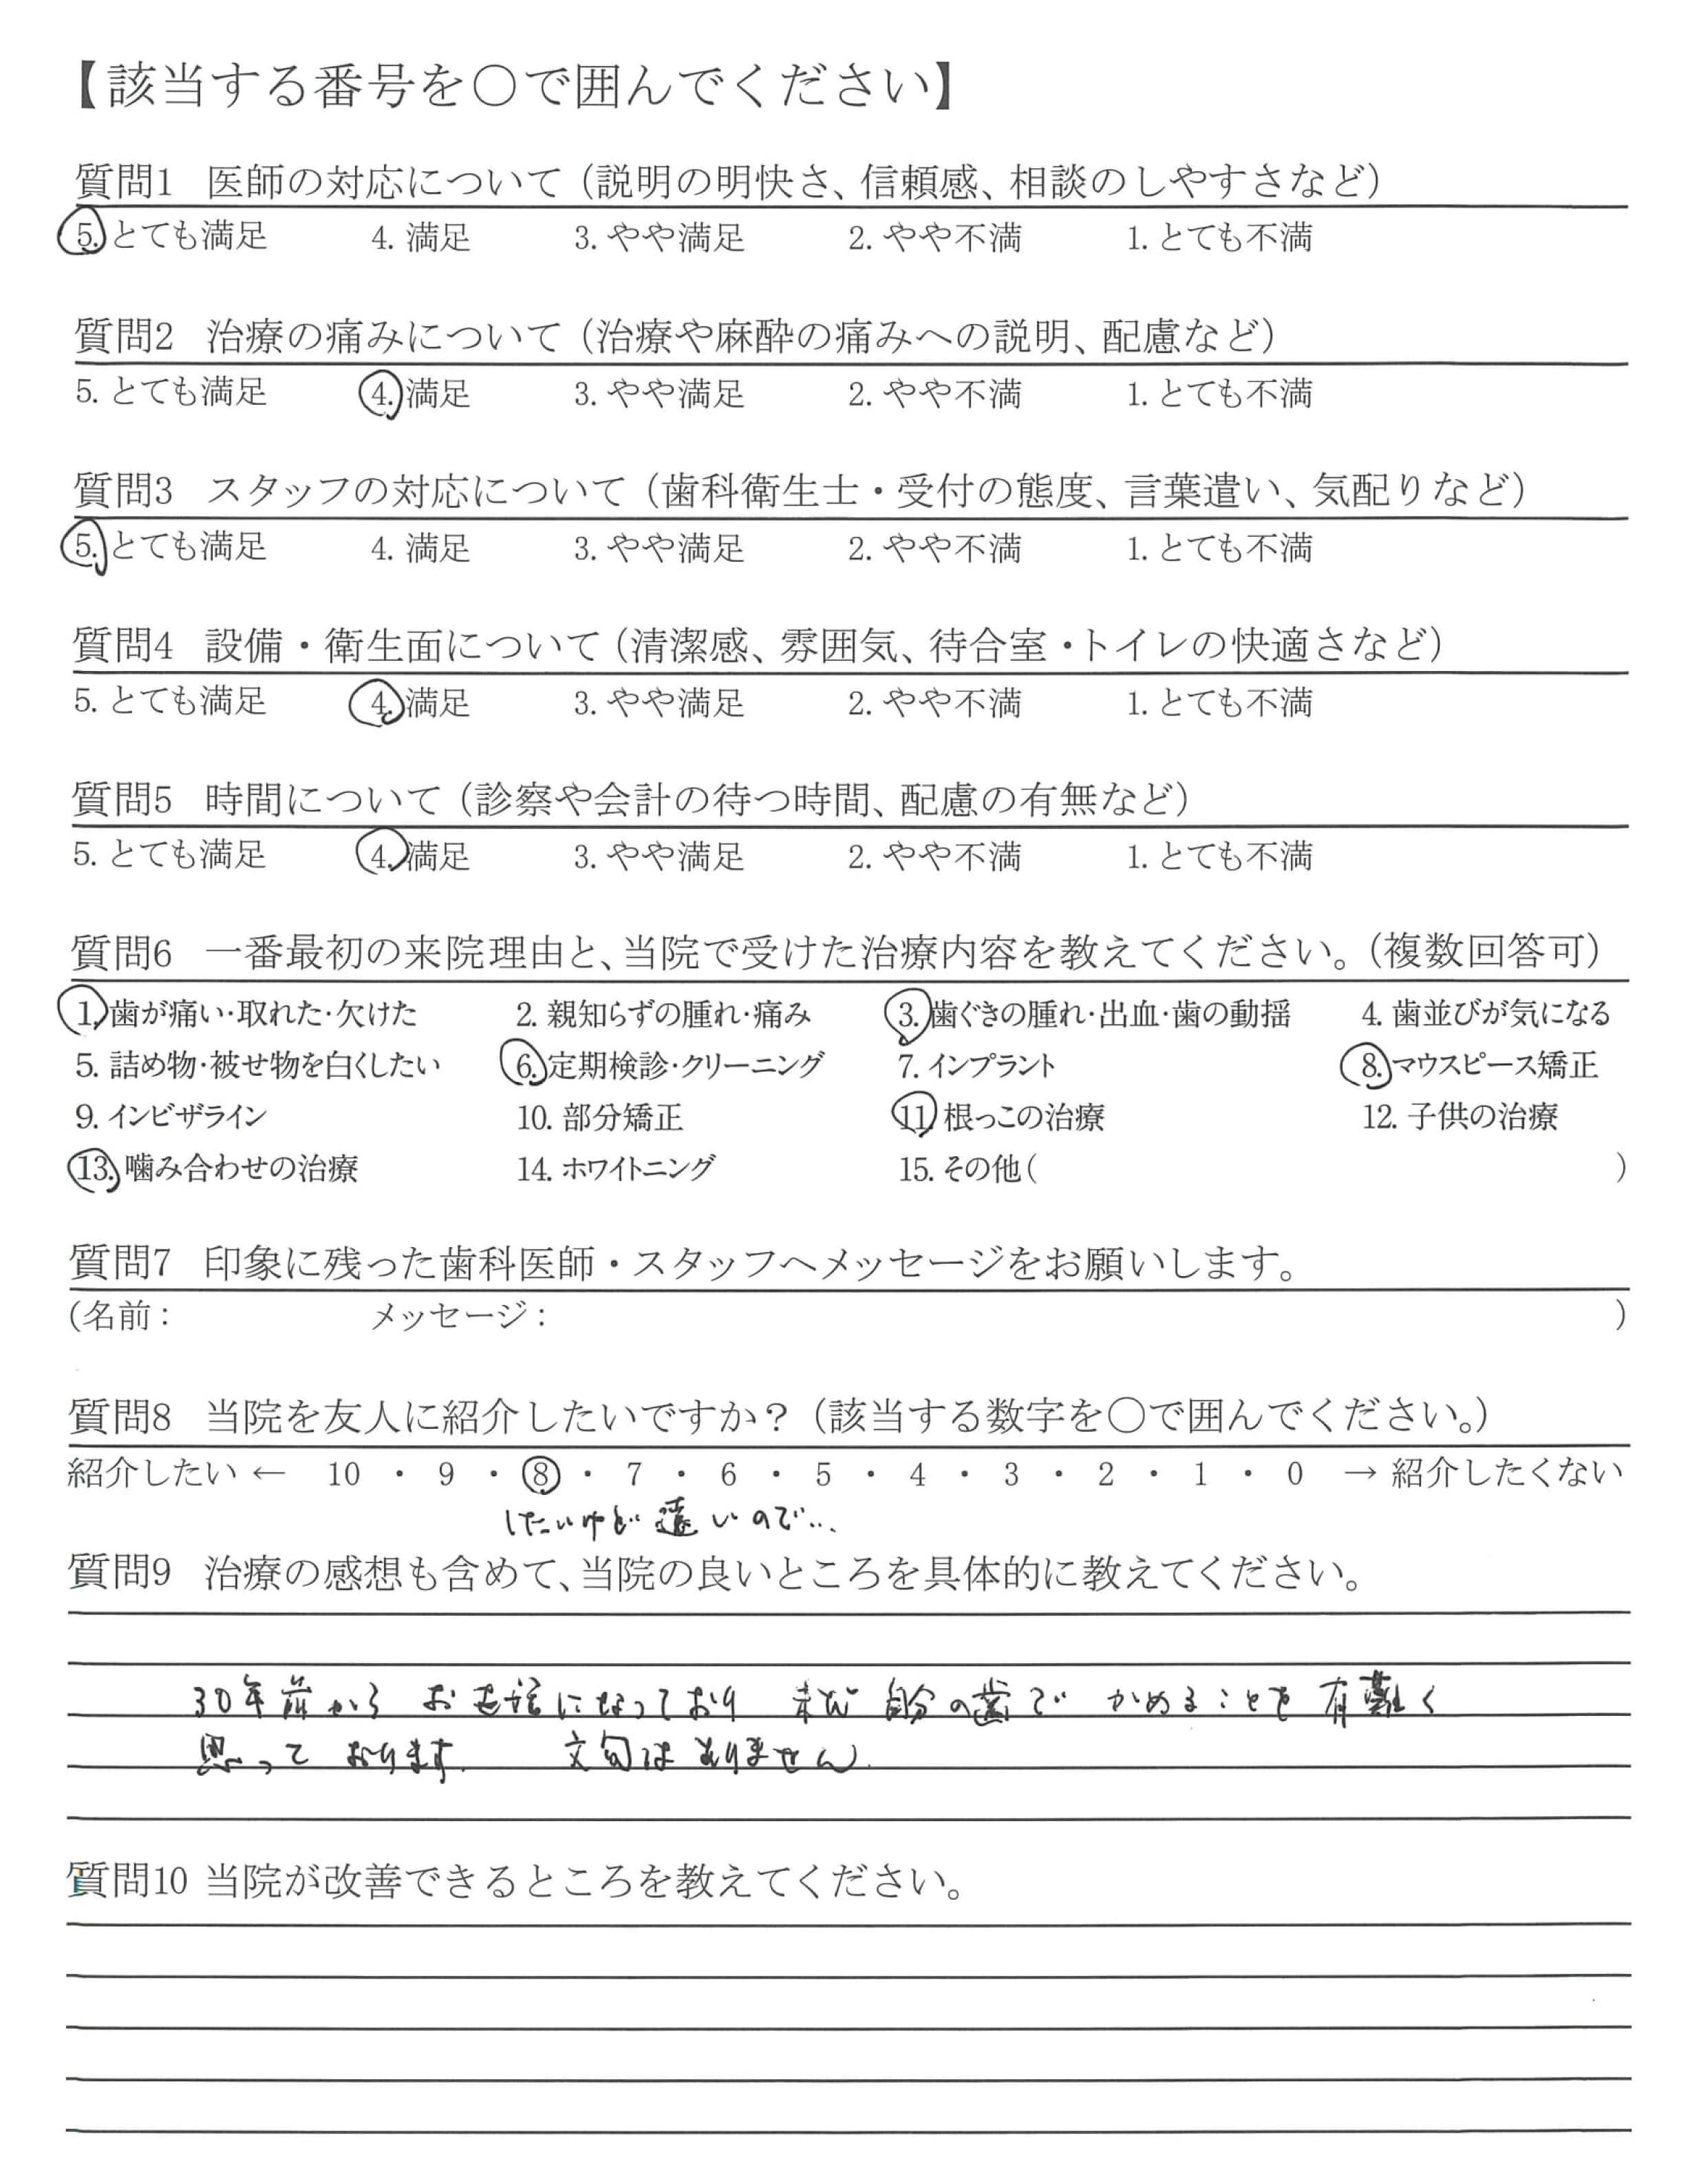 【該当する番号を○で囲んでください】
質問1 医師の対応について（説明の明快さ、信頼感、相談のしやすさなど）
5. とても満足 4. 満足 3. やや満足 2. やや不満 1. とても不満
質問2 治療の痛みについて（治療や麻酔の痛みへの説明、配慮など）
5. とても満足 4. 満足 3. やや満足 2. やや不満 1. とても不満
質問3 スタッフの対応について（歯科衛生士・受付の態度、言葉遣い、気配りなど）
5. とても満足 4. 満足 3. やや満足 2. やや不満 1. とても不満
質問4 設備・衛生面について（清潔感、雰囲気、待合室・トイレの快適さなど）
5. とても満足 4. 満足 3. やや満足 2. やや不満 1. とても不満
質問5 時間について（診察や会計の待つ時間、配慮の有無など）
5. とても満足 4. 満足 3. やや満足 2. やや不満 1. とても不満
質問6 一番最初の来院理由と、当院で受けた治療内容を教えてください。（複数回答可）
1. 歯が痛い・取れた・欠けた 2. 親知らずの腫れ・痛み 3. 歯ぐきの腫れ・出血・歯の動揺 4. 歯並びが気になる
5. 詰め物・被せ物を白くしたい 6. 定期検診・クリーニング 7. インプラント 8. マウスピース矯正
9. インビザライン 10. 部分矯正 11. 根っこの治療 12. 子供の治療
13. 噛み合わせの治療 14. ホワイトニング 15. その他（ ）
質問7 印象に残った歯科医師・スタッフへメッセージをお願いします。
（名前： メッセージ： ）
質問8 当院を友人に紹介したいですか？（該当する数字を○で囲んでください。）
紹介したい ← 10 ・ 9 ・ 8 ・ 7 ・ 6 ・ 5 ・ 4 ・ 3 ・ 2 ・ 1 ・ 0 → 紹介したくない
したいけど 遠いので…
質問9 治療の感想も含めて、当院の良いところを具体的に教えてください。
30年前から お世話になっており 自分の歯で かめることを 有難く
思って おります. 文句は ありません.
質問10 当院が改善できるところを教えてください。